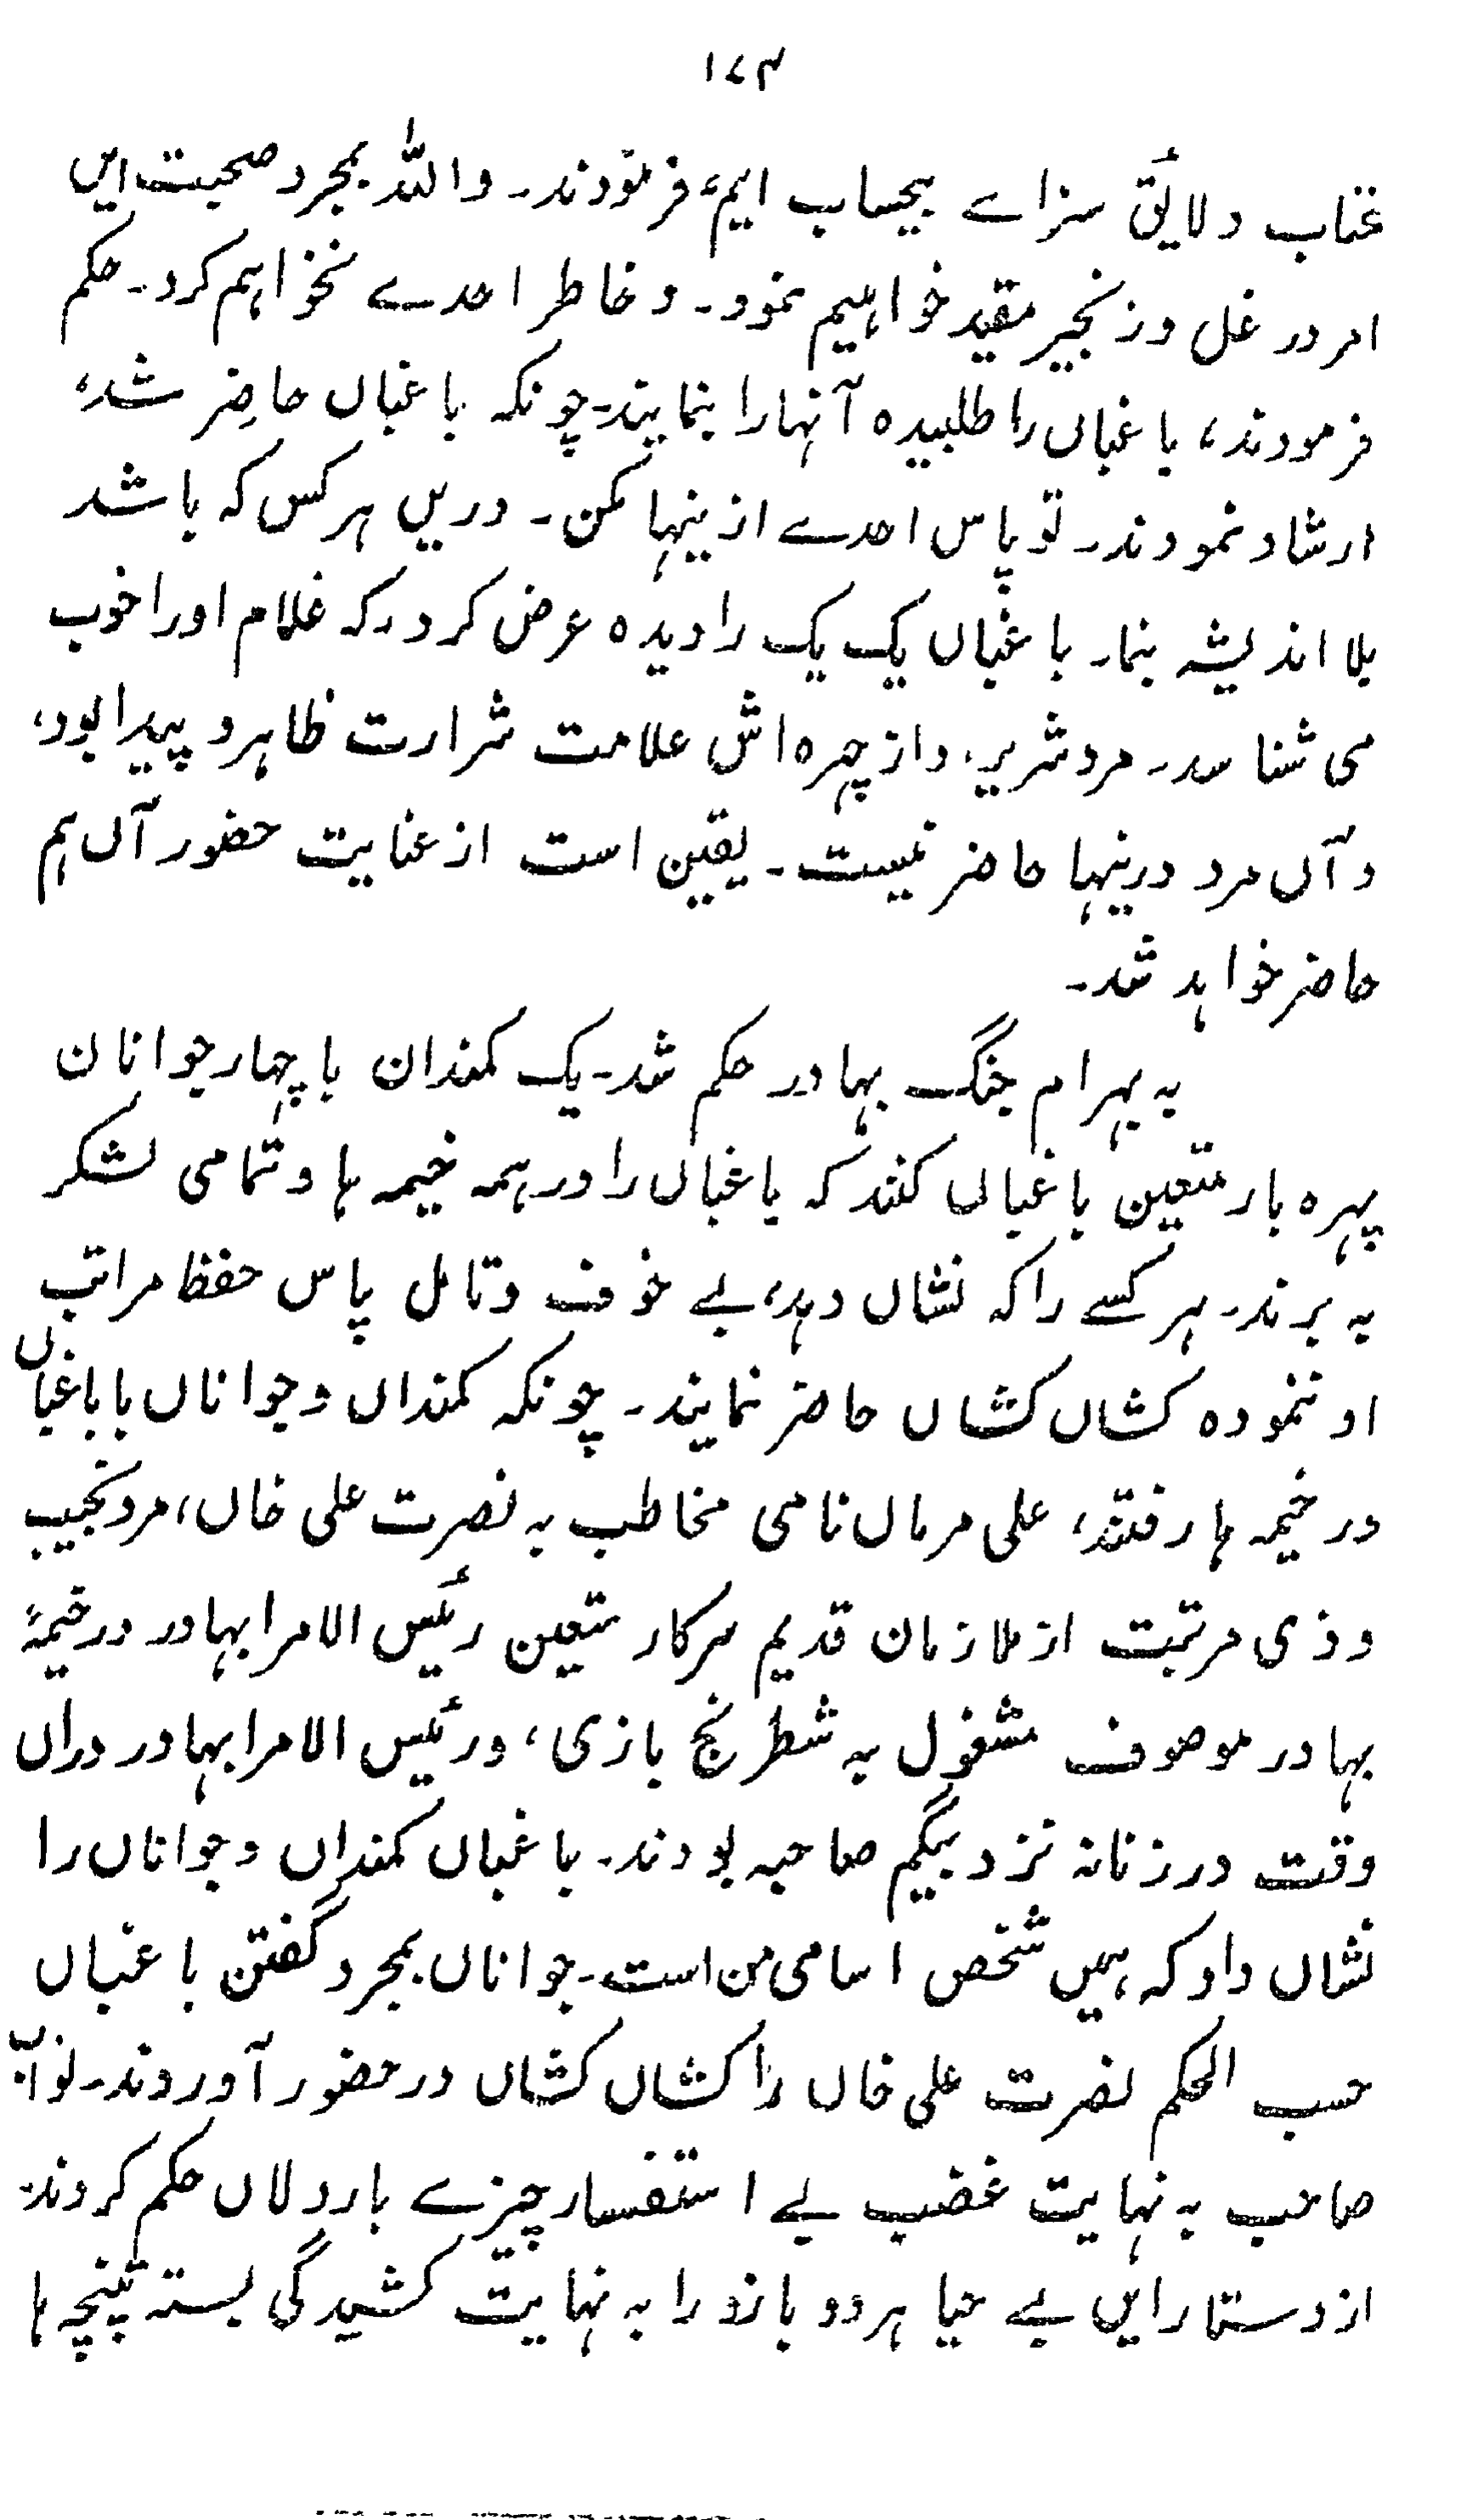 ۱۷۴
عتاب و لائق سزاے بیحساب ایم، فرمودند۔ واللہ بمجرد صحبت ایں
امر در غل و زنجیر مقید خواہیم نمود۔ و خاطر احدے نخواہم کرد۔ حکم
فرمودند، باغباں را طلبیدہ آنہا را بنمایند۔ چونکہ باغباں حاضر شد،
ارشاد نمودند۔ تو پاس احدے ازینہا مکن۔ دریں ہر کس کہ باشد
بلا اندیشہ بنما۔ باغباں یک یک را دیدہ عرض کرد۔ کہ غلام او را خوب
می شناسد۔ مرد شریر، و از چہرہ اش علامت شرارت ظاہر و پیدا بود،
و آں مرد درینہا حاضر نیست۔ یقین است از عنایت حضور آں ہم
حاضر خواہد شد۔
بہ بہرام جنگ بہادر حکم شد۔ یک کمندان با چہار جوانان
پہرہ بار متعین باغباں کنند کہ باغباں را در ہمہ خیمہ ہا و تمامی لشکر
بہ برند۔ ہر کسے را کہ نشاں دہد، بے خوف و تامل پاس حفظ مراتب
او ننمودہ کشاں کشاں حاضر نمایند۔ چونکہ کمنداں و جواناں با باغباں
در خیمہ ہا رفتند، علی مرداں نامی مخاطب بہ نصرت علی خاں، مرد نجیب
و ذی مرتبت از ملازمان قدیم سرکار متعین رئیس الامرا بہادر در خیمۂ
بہادر موصوف مشغول بہ شطرنج بازی، و رئیس الامرا بہادر دراں
وقت در زنانہ نزد بیگم صاحبہ بودند۔ باغباں کمنداں و جواناں را
نشاں داد کہ ہمیں شخص اسامی من است۔ جواناں بمجرد گفتن باغباں
حسب الحکم نصرت علی خاں را کشاں کشاں در حضور آوردند۔ نواب
صاحب بہ نہایت غضب بے استفسار چیزے باردلاں حکم کردند۔
از دستار ایں بے حیا ہر دو بازو را بہ نہایت کشیدگی بستہ تپنچہ ہا